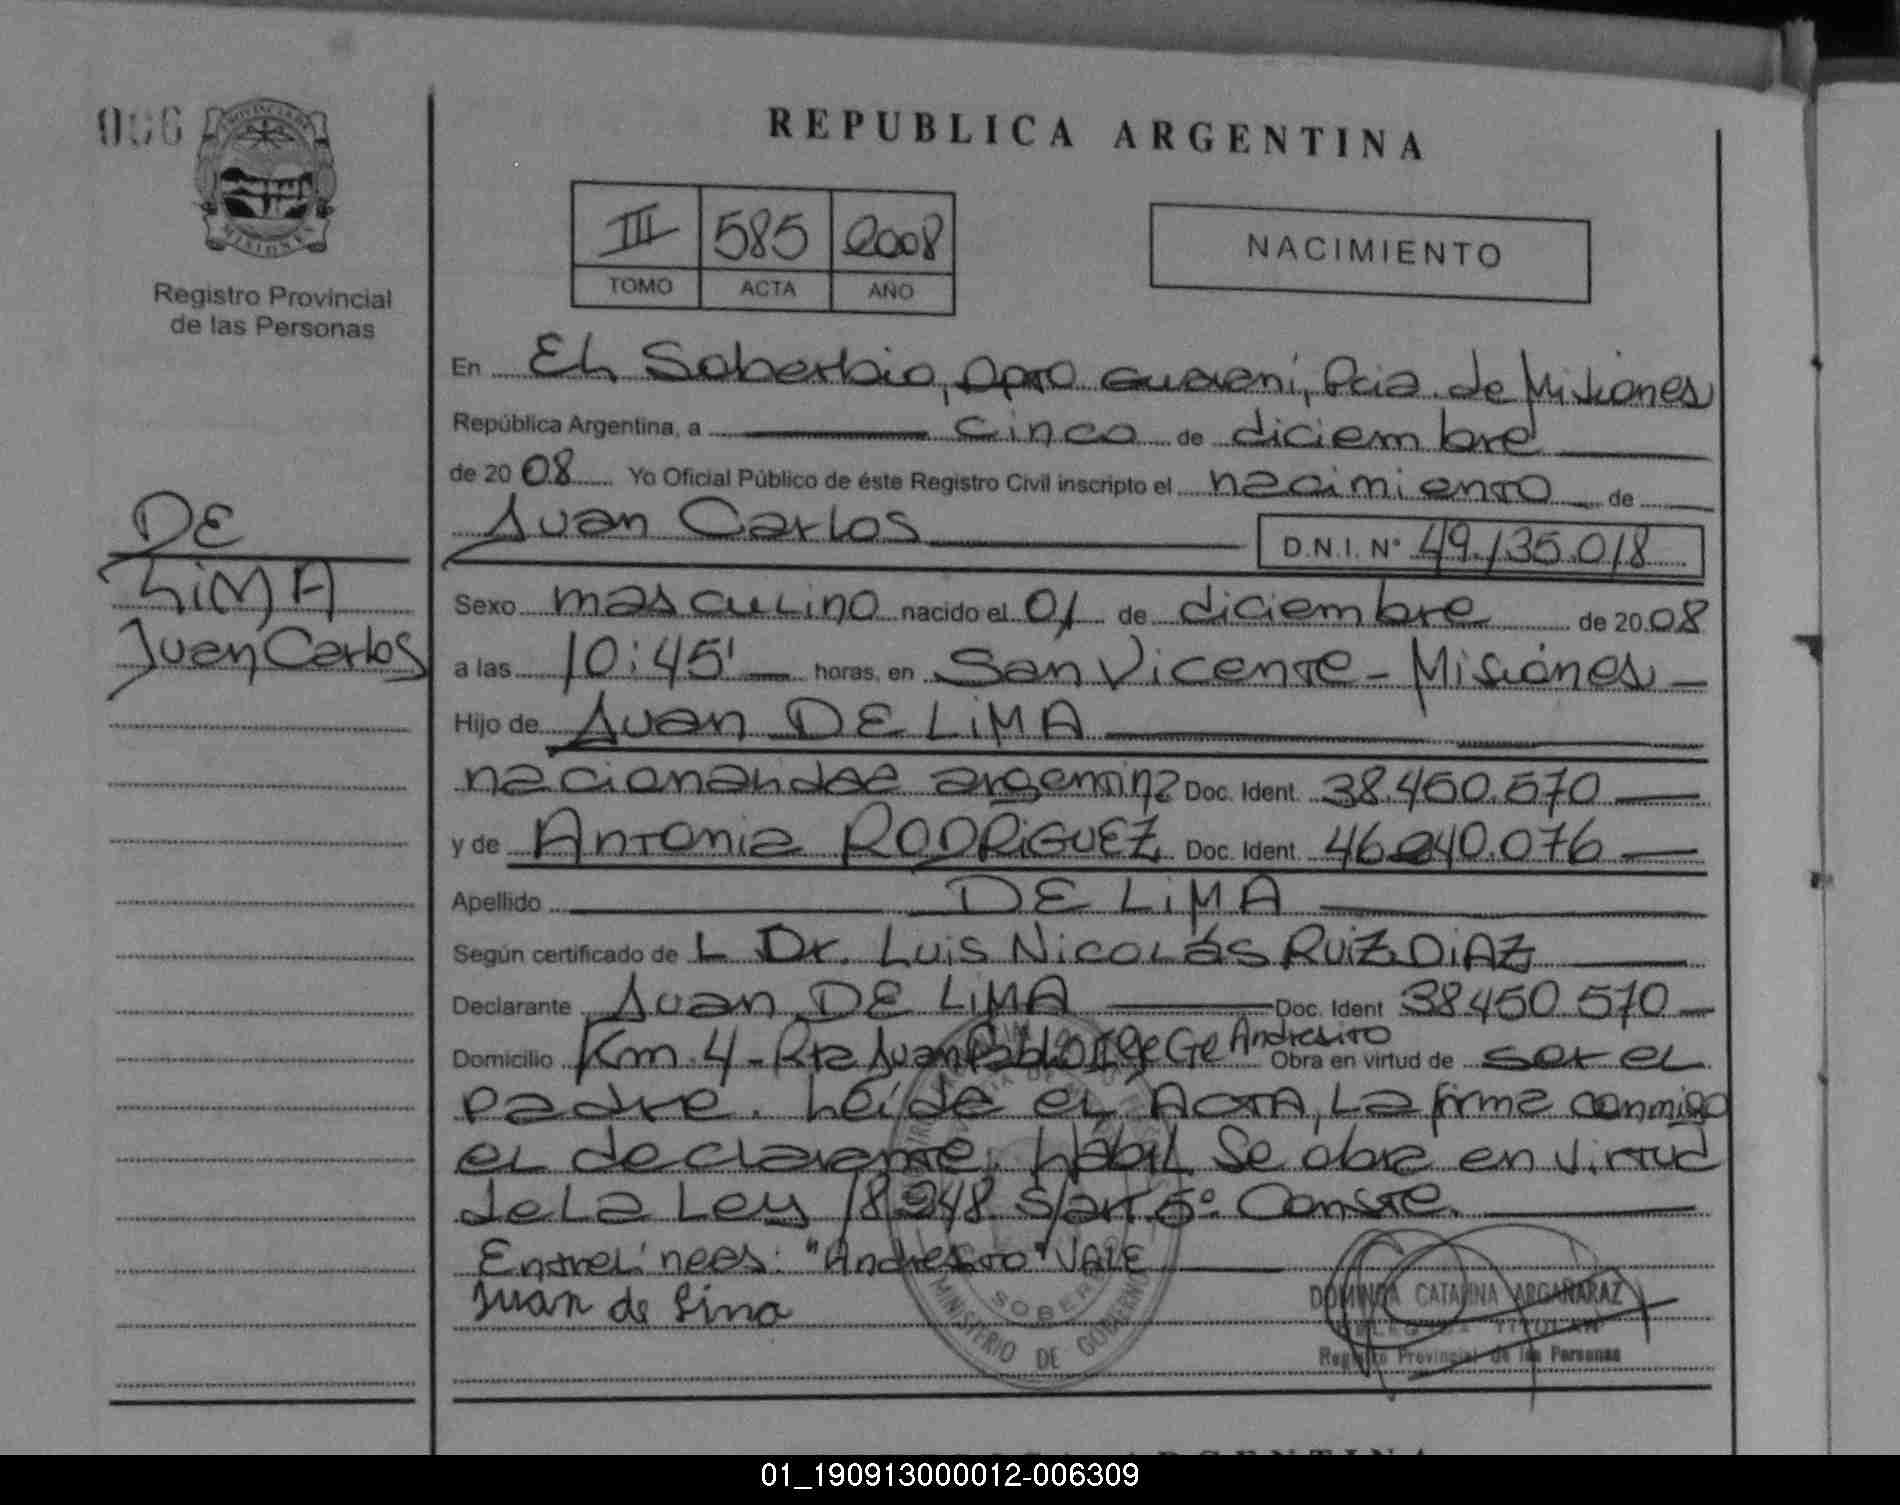 006
PROVINCIA DE
MISIONES
Registro Provincial
de las Personas
DE
LiMA
Juan Carlos
REPUBLICA ARGENTINA
III 585 2008
TOMO ACTA AÑO
NACIMIENTO
En EL Soberbio, Dpto Guaraní, Pcia. de Misiones
República Argentina, a cinco de diciembre
de 20 08 Yo Oficial Público de éste Registro Civil inscripto el nacimiento de
Juan Carlos D.N.I. N° 49.135.018
Sexo masculino nacido el 01 de diciembre de 20 08
a las 10:45' horas, en San Vicente - Misiones -
Hijo de Juan DE LiMA
nacionalidad argentina Doc. Ident. 38.450.570
y de Antonia RODRiGUEZ Doc. Ident. 46.240.076
Apellido DE LiMA
Según certificado de L Dr. Luis Nicolás RUiZ DiAZ
Declarante Juan DE LiMA Doc. Ident 38450.570
Domicilio Km. 4 - Rta Juan Pablo Andresito Obra en virtud de ser el
padre. Leída el ACTA, La firma conmigo
el declarante, hábil. Se obra en virtud
de La Ley 18.248 S/art. 5º. Conste.
Entrelíneas: "Andresito" VALE
Juan de Lima
SOBERBIO
MINISTERIO DE GOBIERNO
DOMINGA CATALINA ARGAÑARAZ
DELEGADA TITULAR
Registro Provincial de las Personas
REPUBLICA ARGENTINA
01_190913000012-006309